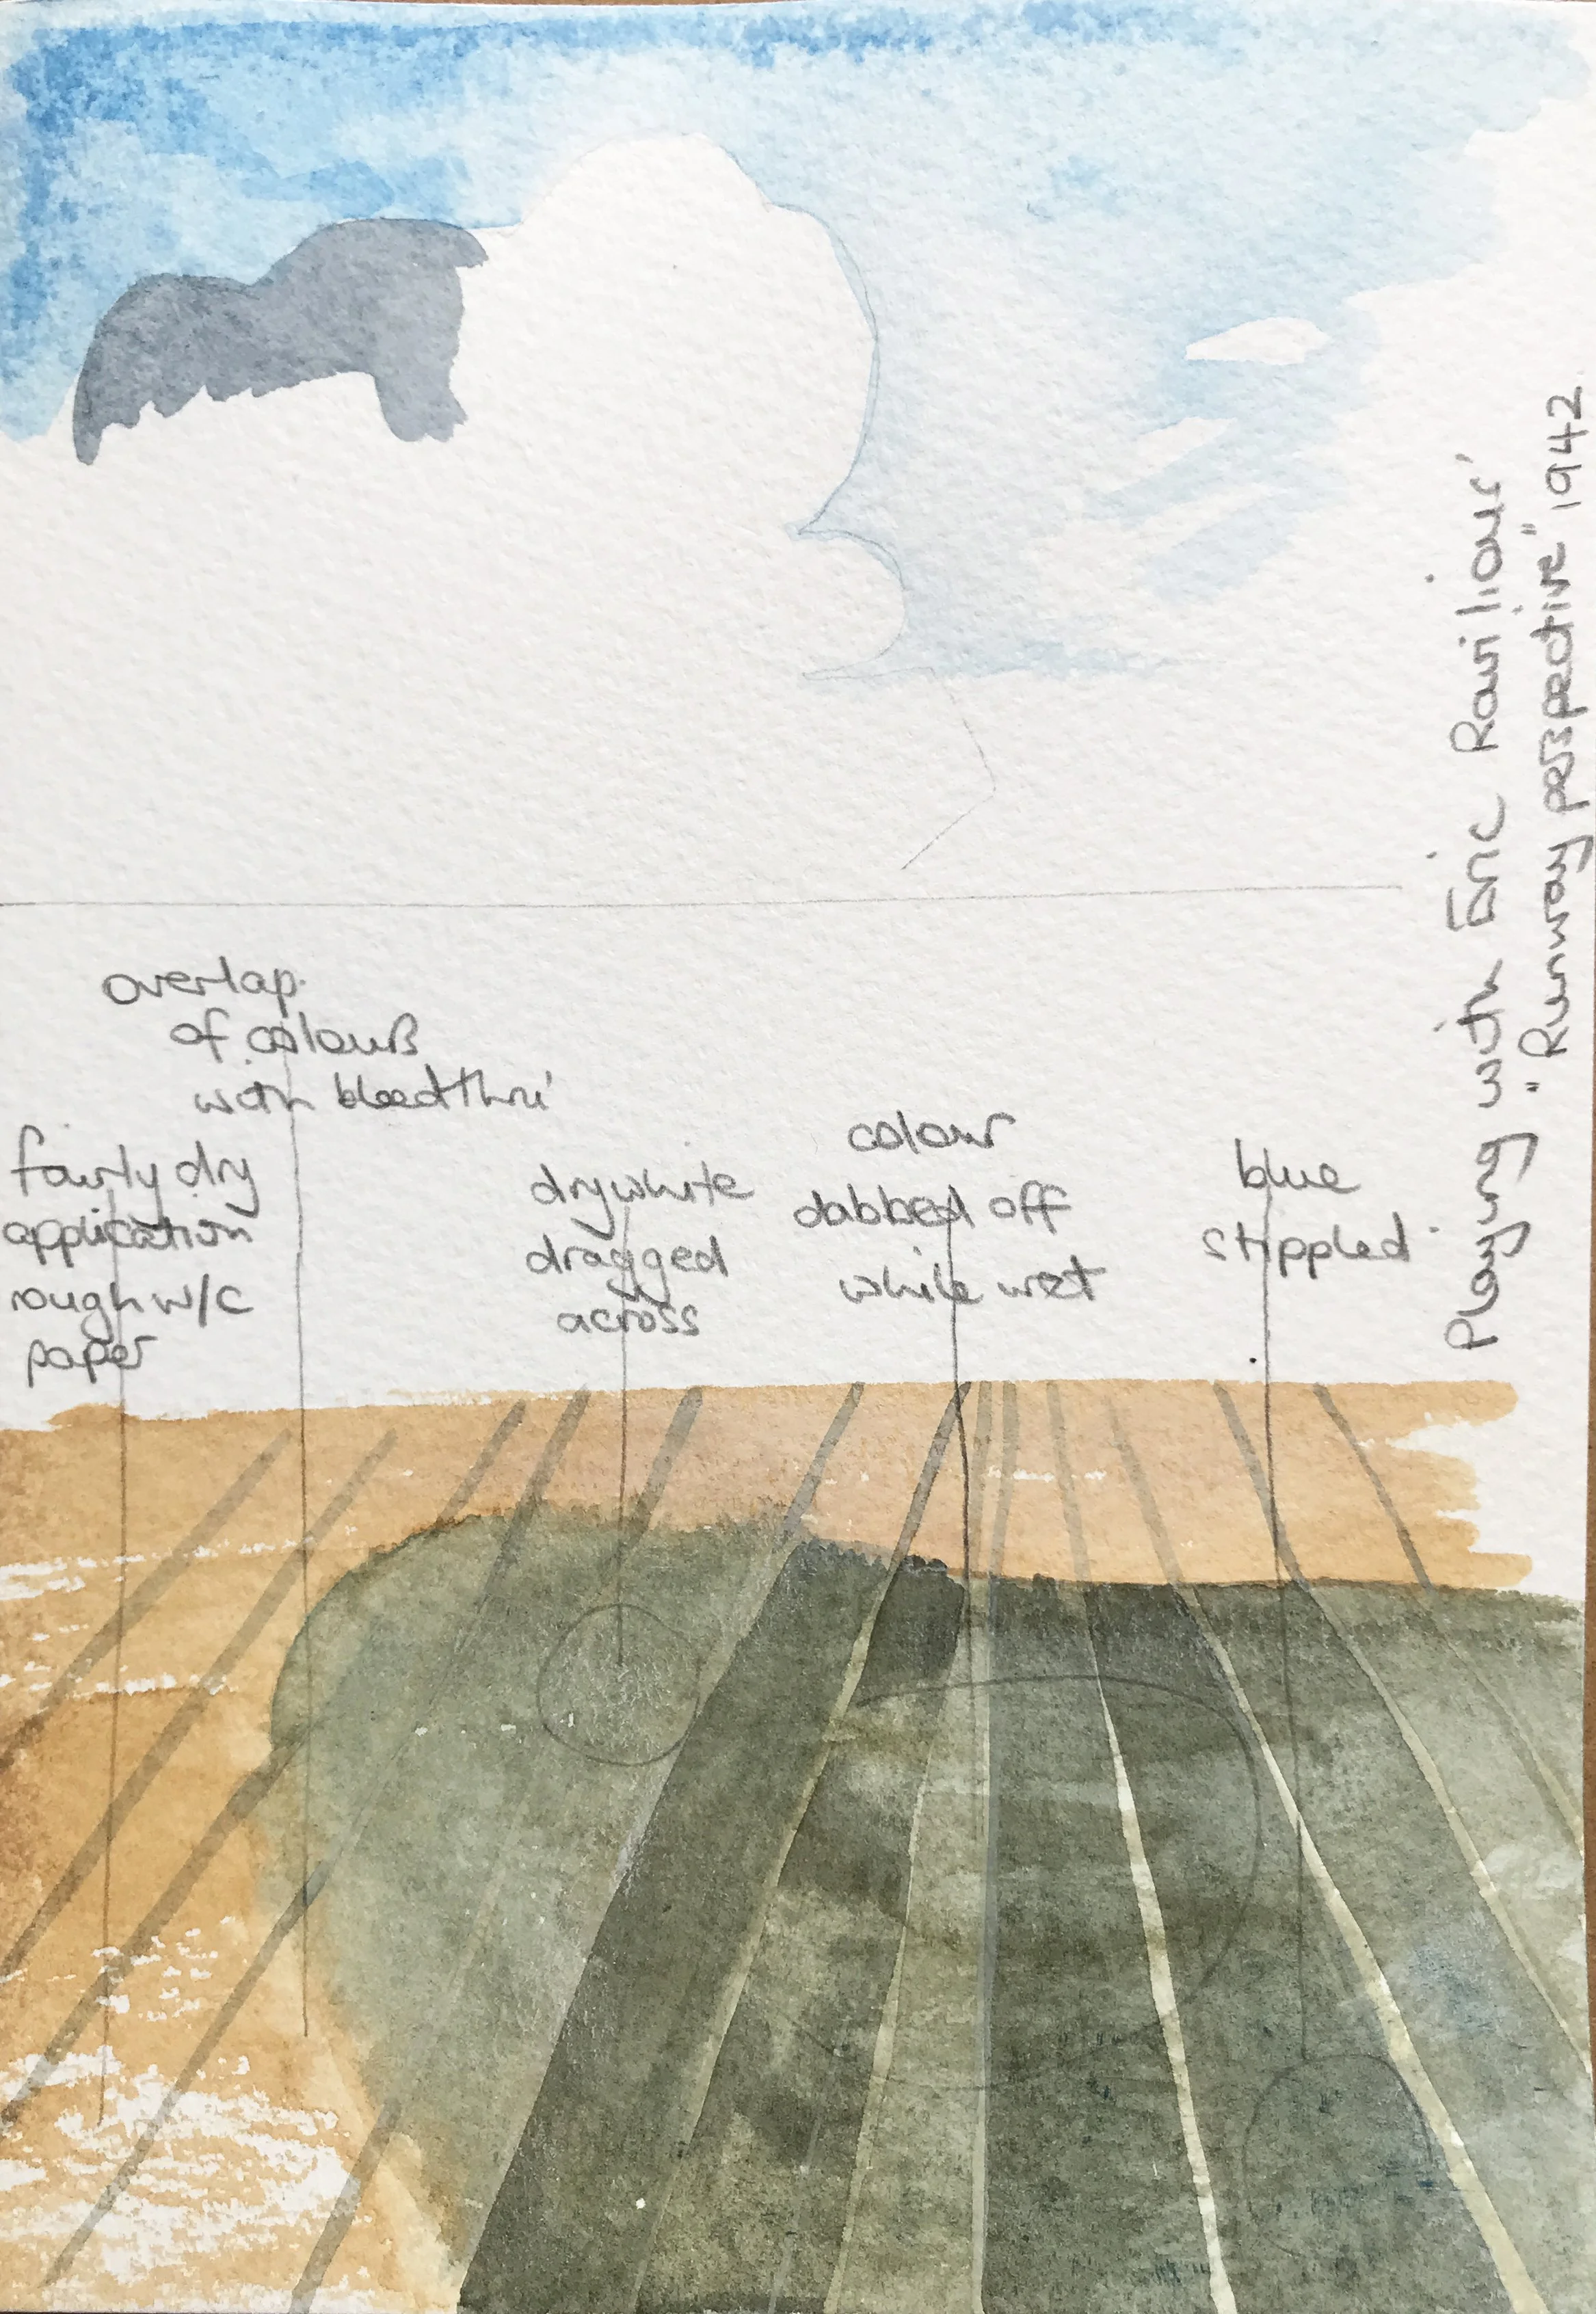 overlap
of colours
with bleed thru'
fairly dry
application
rough w/c
paper
dry white
dragged
across
colour
dabbed off
while wet
blue
stippled
Playing with Eric Ravilious'
"Runway perspective" 1942